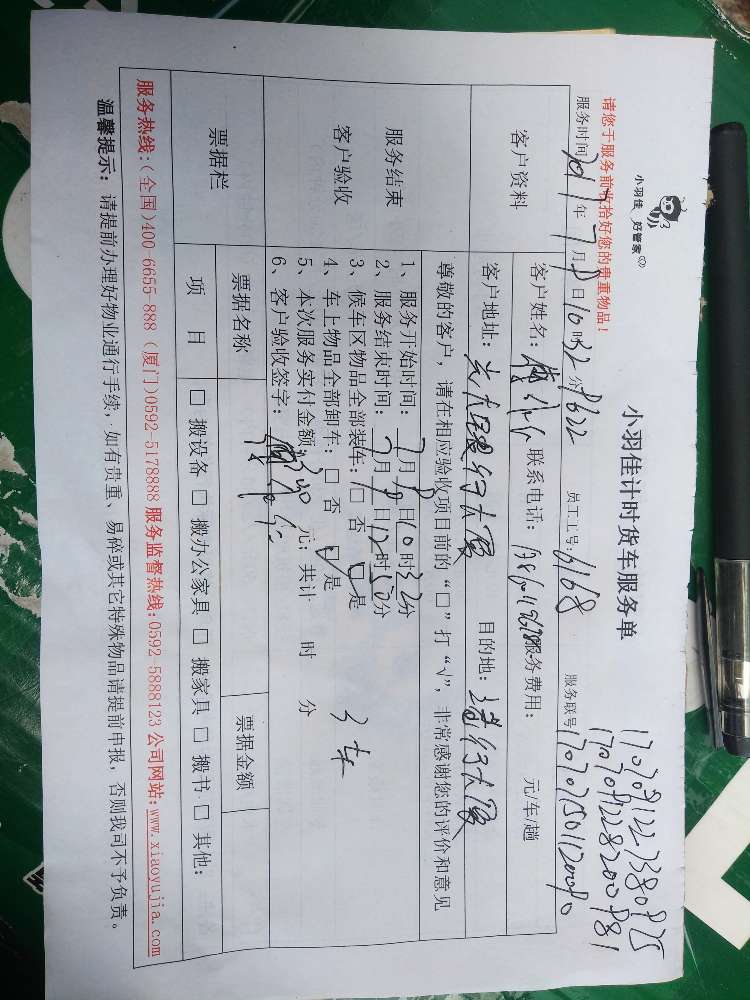 小羽佳 好管家
小羽佳计时货车服务单
请您于服务前收拾好您的贵重物品！
服务时间 2017年7月 日10时32分 员工工号：6168 服务联号
客户资料
客户姓名： 联系电话： 服务费用： 元/车/趟
客户地址： 银行大厦 目的地： 银行大厦
尊敬的客户，请在相应验收项目前的“□”打“√”，非常感谢您的评价和意见
服务结束
客户验收
1、服务开始时间：7月 日10时32分
2、服务结束时间：7月 日12时50分
3、候车区物品全部装车：□ 否 ☑ 是
4、车上物品全部卸车：□ 否 ☑ 是
5、本次服务实付金额： 元；共计 时 分
3车
6、客户验收签字：
票据栏
票据名称 票据金额
项 目 □ 搬设备 □ 搬办公家具 □ 搬家具 □ 搬书 □ 其他：
服务热线：（全国）400-6655-888（厦门）0592-5178888 服务监督热线：0592-5888123 公司网站：www.xiaoyujia.com
温馨提示：请提前办理好物业通行手续，如有贵重、易碎或其它特殊物品请提前申报，否则我司不予负责。